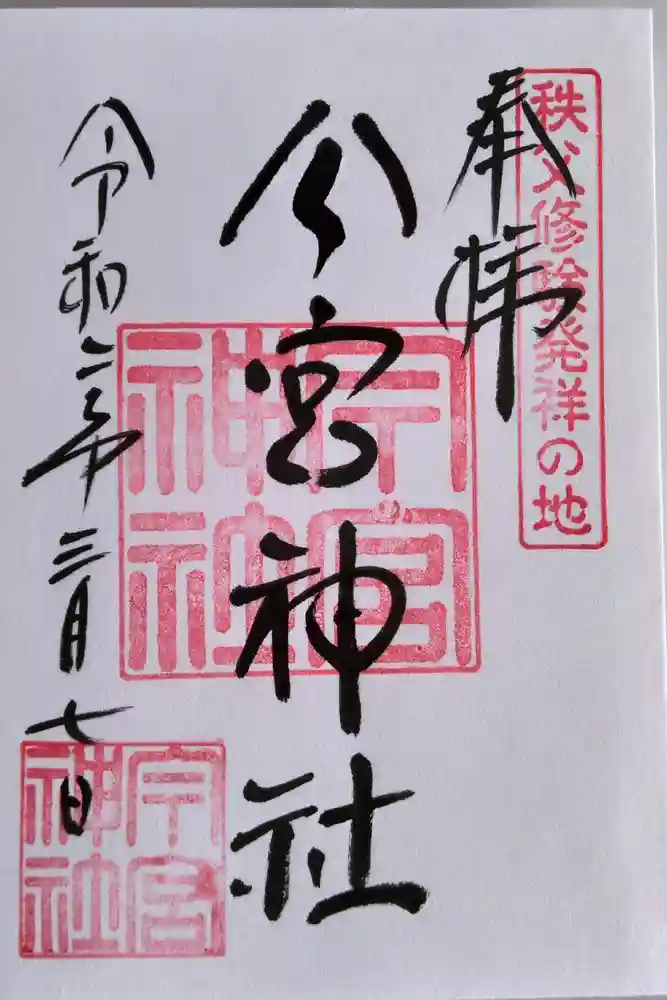 秩父修験発祥の地
奉拝
今宮神社
今宮神社
令和二年三月七日
今宮神社